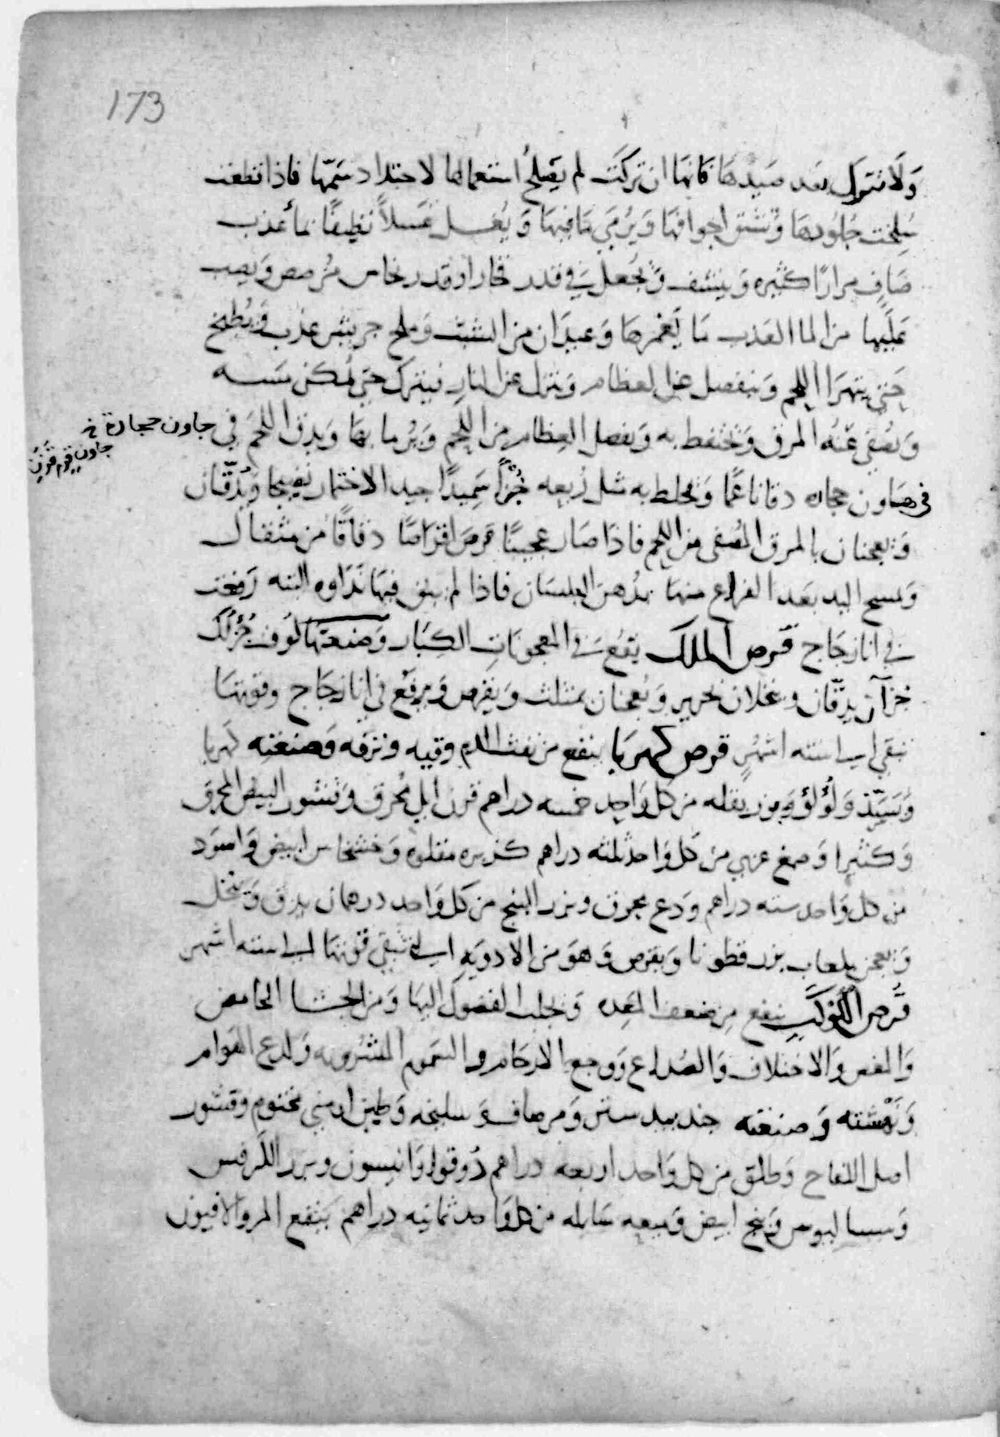 173
ولا تترك بعد صيدها فانها ان تركت لم يصلح استعمالها لاحتداد سمها فاذا قطعت
سلخت جلودها وتشق اجوافها ويرمى ما فيها ويغسل غسلا نظيفا بماء عذب
صاف مرارا كثيره وينشف ويجعل في قدر فخار او قدر نحاس مرصص ويصب
عليها من الما العذب ما يغمرها وعيدان من الشبث وملح جريش عذب ويطبخ
حتى يتهرا اللحم وينفصل عن العظام وينزل عن النار فيترك حتى يمكن مسه
ويصفى عنه المرق ويحتفظ به ويفصل العظام من اللحم ويرما بها ويدق اللحم في
جاون حجارة
في هاون حجاره دقا ناعما ويخلط به مثل ربعه خبزا سميدا جيد الاختمار نضيجا ويدقان
ويعجنان بالمرق المصفى من اللحم فاذا صار عجينا قرص اقراصا دقاقا من مثقال
وتمسح اليد بعد الفراغ منها بدهن البلسان فاذا لم يبق فيها نداوه البته رفعت
في انا زجاج قرص الملك يقع في المعجونات الكبار وصنعتها
جزآن يدقان وينخلان بحرير ويعجنان بمثلث ويقرص ويرفع في انا زجاج وقوتها
تبقى الى سته اشهر قرص كهربا ينفع من نفث الدم وقيه ونزفه وصنعته كهربا
وبسذ ولؤلؤ وبزر بقله من كل واحد خمسه دراهم قرن ايل محرق وقشور البيض المحرق
وكثيرا وصمغ عربي من كل واحد ثلثه دراهم كزبره مقلوه وخشخاش ابيض واسود
من كل واحد سته دراهم وودع محرق وبزر البنج من كل واحد درهمان يدق وينخل
ويعجن بلعاب بزر قطونا ويقرص وهو من الادويه التي تبقى قوتها الى سته اشهر
قرص الكوكب ينفع من ضعف المعده وتجلب الفضول اليها ومن الجشا الحامض
والمغص والاختلاف والصداع ووجع الارحام والسموم المشروبه ولدغ الهوام
ونهشته وصنعته جندبيدستر ومر صاف وسليخه وطين ارمني مختوم وقشور
اصل اللفاح وطلق من كل واحد اربعه دراهم دوقوا وانيسون وبزر الكرفس
وسساليوس وبنج ابيض وميعه سايله من كل واحد ثمانيه دراهم ينقع المر والافيون